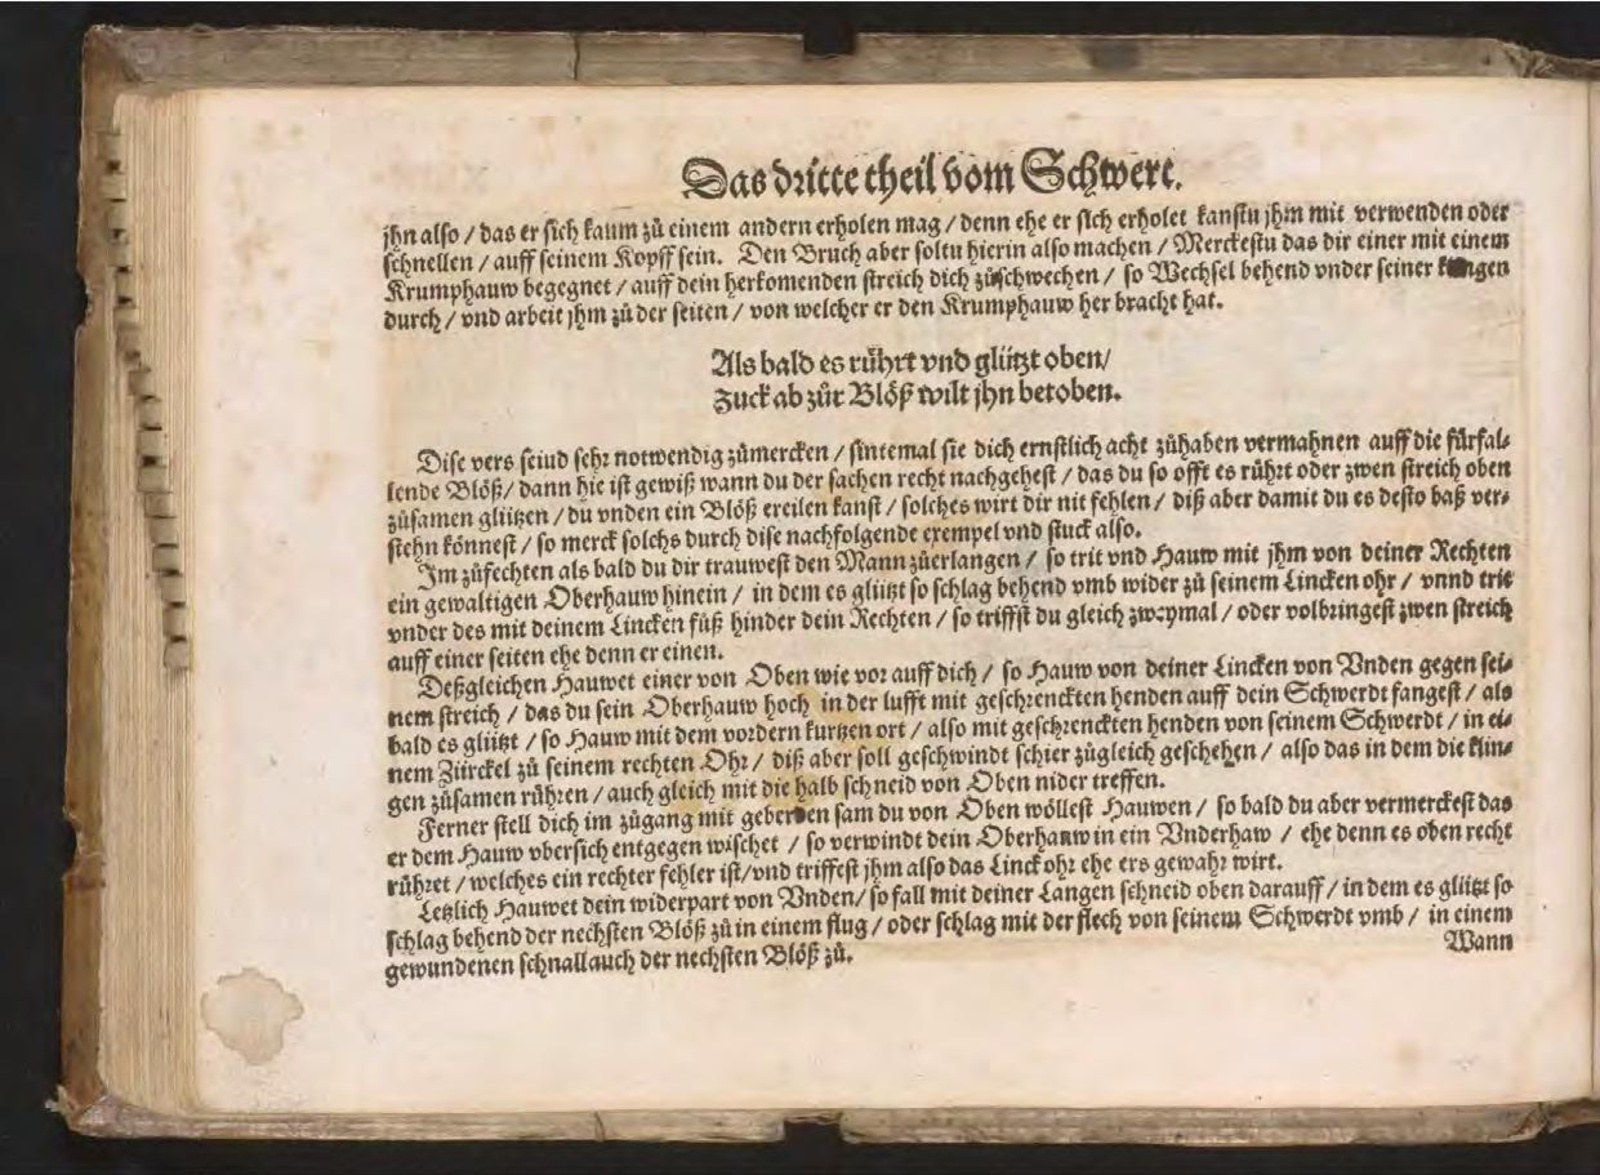 Das dritte theil vom Schwert.
jhn also / das er sich kaum zů einem andern erholen mag / denn ehe er sich erholet kanstu jhm mit verwenden oder
schnellen / auff seinem Kopff sein. Den Bruch aber soltu hierin also machen / Merckestu das dir einer mit einem
Krumphauw begegnet / auff dein herkomenden streich dich zůschwechen / so Wechsel behend vnder seiner klingen
durch / vnd arbeit jhm zů der seiten / von welcher er den Krumphauw her bracht hat.
Als bald es rührt vnd glützt oben/
Zuck ab zůr Blöß wilt jhn betoben.
Dise vers seiud sehr notwendig zůmercken / sintemal sie dich ernstlich acht zůhaben vermahnen auff die fürfal-
lende Blöß/ dann hie ist gewiß wann du der sachen recht nachgehest / das du so offt es rührt oder zwen streich oben
zůsamen glützen / du vnden ein Blöß ereilen kanst / solches wirt dir nit fehlen / diß aber damit du es desto baß ver-
stehn könnest / so merck solchs durch dise nachfolgende exempel vnd stuck also.
Im zůfechten als bald du dir trauwest den Mann zůerlangen / so trit vnd Hauw mit jhm von deiner Rechten
ein gewaltigen Oberhauw hinein / in dem es glützt so schlag behend vmb wider zů seinem Lincken ohr / vnnd trit
vnder des mit deinem Lincken fůß hinder dein Rechten / so triffst du gleich zweymal / oder volbringest zwen streich
auff einer seiten ehe denn er einen.
Deßgleichen Hauwet einer von Oben wie vor auff dich / so Hauw von deiner Lincken von Vnden gegen sei-
nem streich / das du sein Oberhauw hoch in der lufft mit geschrenckten henden auff dein Schwerdt fangest / als
bald es glützt / so Hauw mit dem vordern kurtzen ort / also mit geschrenckten henden von seinem Schwerdt / in ei-
nem Zürckel zů seinem rechten Ohr / diß aber soll geschwindt schier zůgleich geschehen / also das in dem die klin-
gen zůsamen rühren / auch gleich mit die halb schneid von Oben nider treffen.
Ferner stell dich im zůgang mit geberden sam du von Oben wöllest Hauwen / so bald du aber vermerckest das
er dem Hauw vbersich entgegen wischet / so verwindt dein Oberhauw in ein Vnderhaw / ehe denn es oben recht
rühret / welches ein rechter fehler ist/vnd triffest jhm also das Linck ohr ehe ers gewahr wirt.
Letzlich Hauwet dein widerpart von Vnden/ so fall mit deiner Langen schneid oben darauff / in dem es glützt so
schlag behend der nechsten Blöß zů in einem flug / oder schlag mit der flech von seinem Schwerdt vmb / in einem
gewundenen schnall auch der nechsten Blöß zů.
Wann